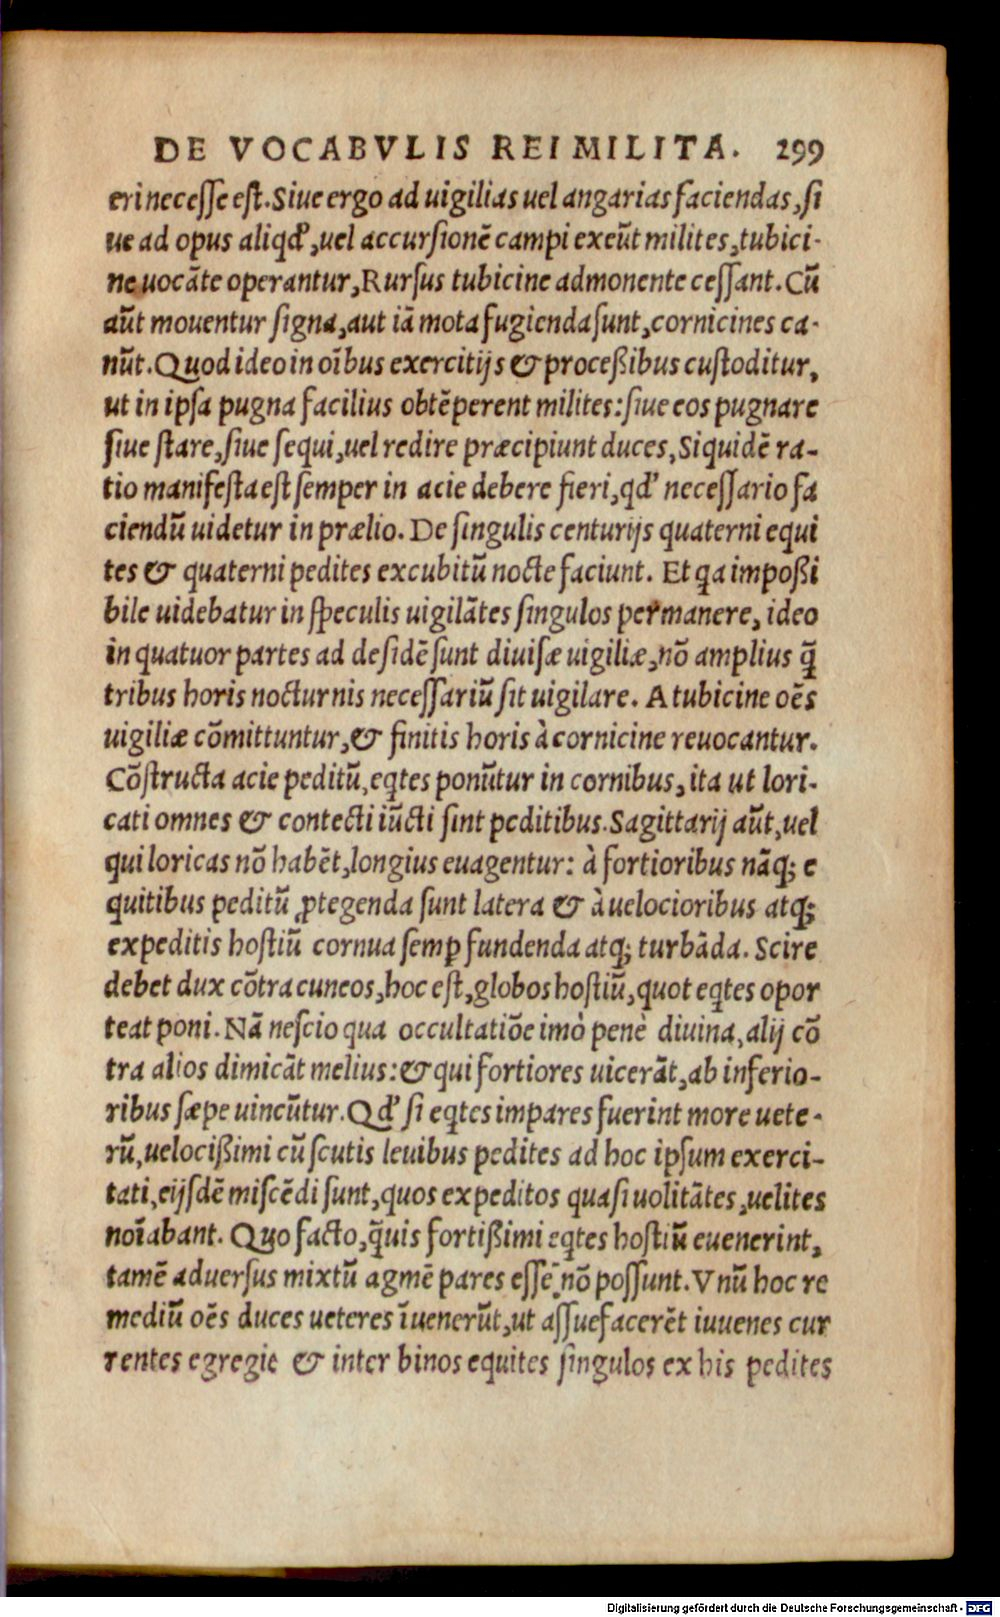 DE VOCABVLIS REI MILITA. 299
eri necesse est. Siue ergo ad uigilias uel angarias faciendas, si
ue ad opus aliqđ, uel accursionē campi exeūt milites, tubici-
ne uocāte operantur, Rursus tubicine admonente cessant. Cū
aūt mouentur signa, aut iā mota fugienda sunt, cornicines ca-
nūt. Quod ideo in oībus exercitijs & proceßibus custoditur,
ut in ipsa pugna facilius obtēperent milites: siue eos pugnare
siue stare, siue sequi, uel redire præcipiunt duces, Siquidē ra-
tio manifesta est semper in acie debere fieri, qđ necessario fa
ciendū uidetur in prælio. De singulis centurijs quaterni equi
tes & quaterni pedites excubitū nocte faciunt. Et qa impoßi
bile uidebatur in speculis uigilātes singulos permanere, ideo
in quatuor partes ad desidē sunt diuisæ uigiliæ, nō amplius q̄
tribus horis nocturnis necessariū sit uigilare. A tubicine oēs
uigiliæ cōmittuntur, & finitis horis à cornicine reuocantur.
Cōstructa acie peditū, eqtes ponūtur in cornibus, ita ut lori-
cati omnes & contecti iūcti sint peditibus. Sagittarij aūt, uel
qui loricas nō habēt, longius euagentur: à fortioribus nāq; e
quitibus peditū ꝓtegenda sunt latera & à uelocioribus atq;
expeditis hostiū cornua semꝑ fundenda atq; turbāda. Scire
debet dux cōtra cuneos, hoc est, globos hostiū, quot eqtes opor
teat poni. Nā nescio qua occultatiōe imò penè diuina, alij cō
tra alios dimicāt melius: & qui fortiores uicerāt, ab inferio-
ribus sæpe uincūtur. Qđ si eqtes impares fuerint more uete-
rū, uelocißimi cū scutis leuibus pedites ad hoc ipsum exerci-
tati, eijsdē miscēdi sunt, quos expeditos quasi uolitātes, uelites
noīabant. Quo facto, q̄uis fortißimi eqtes hostiū euenerint,
tamē aduersus mixtū agmē pares esse nō possunt. Vnū hoc re
mediū oēs duces ueteres īuenerūt, ut assuefacerēt iuuenes cur
rentes egregie & inter binos equites singulos ex his pedites
Digitalisierung gefördert durch die Deutsche Forschungsgemeinschaft - DFG